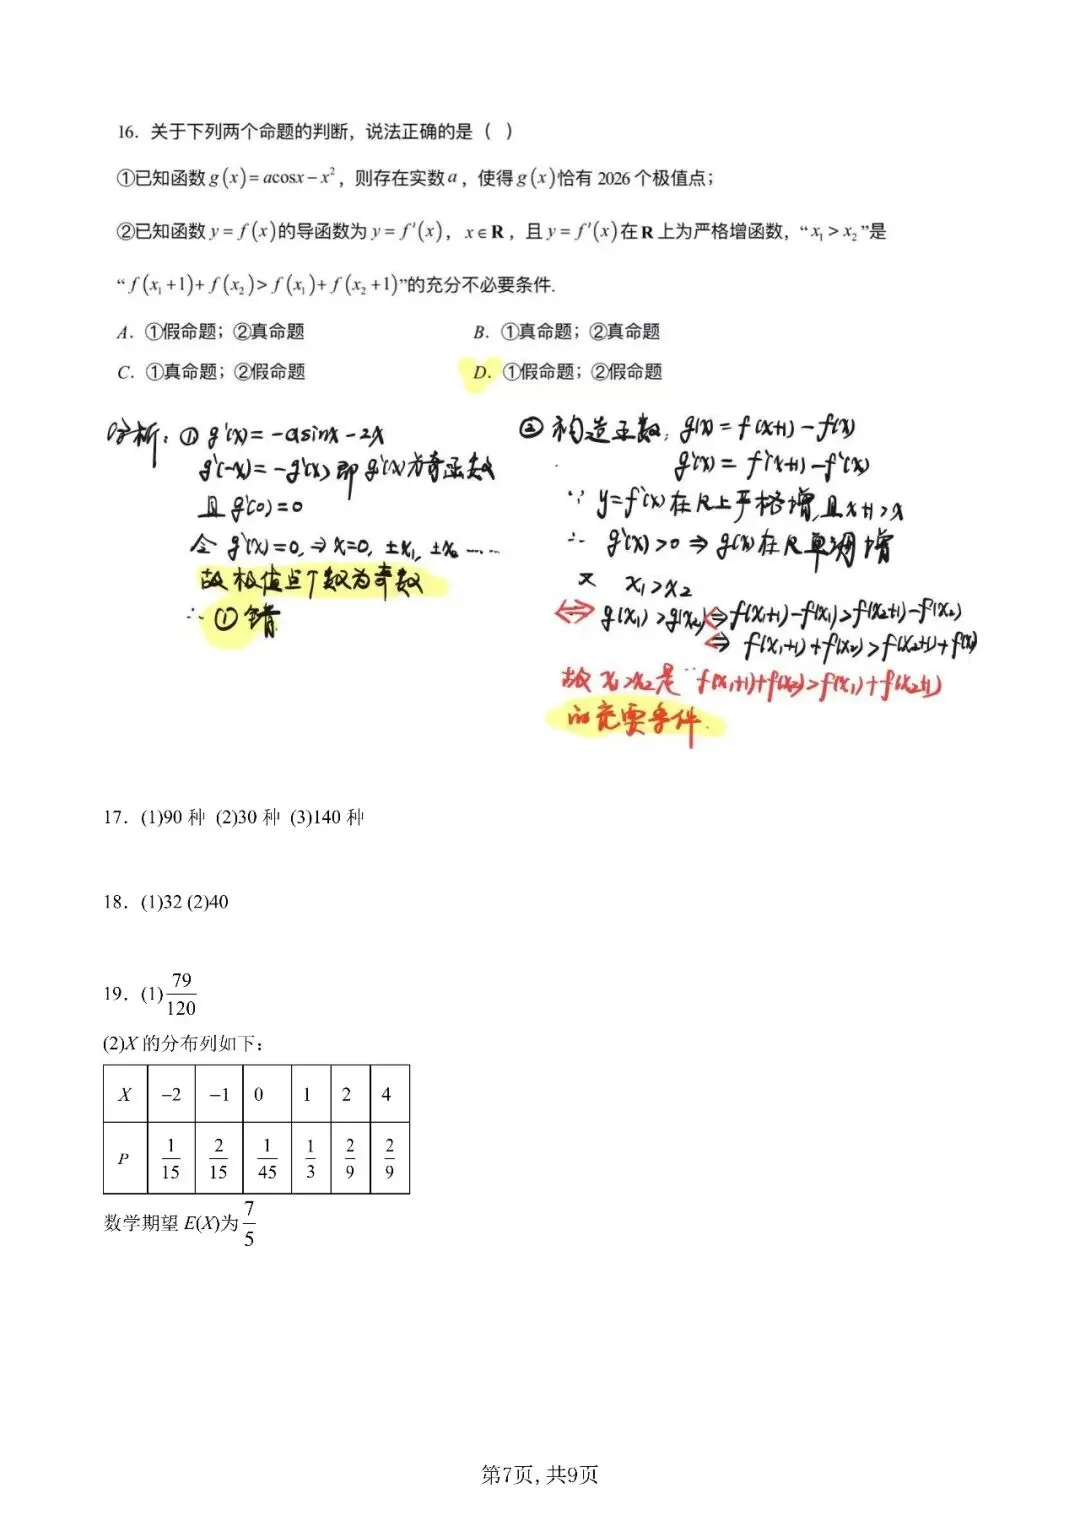 16．关于下列两个命题的判断，说法正确的是（ ）
①已知函数 g(x)=acosx−x²，则存在实数 a，使得 g(x)恰有 2026 个极值点；
②已知函数 y=f(x)的导函数为 y=f′(x)，x∈R，且 y=f′(x)在 R 上为严格增函数，“x₁>x₂”是
“f(x₁+1)+f(x₂)>f(x₁)+f(x₂+1)”的充分不必要条件.
A．①假命题；②真命题 B．①真命题；②真命题
C．①真命题；②假命题 D．①假命题；②假命题
分析：① g'(x)=-asinx-2x
g'(-x)=-g'(x) 即 g'(x)为奇函数
且 g'(0)=0
令 g'(x)=0，⇒ x=0, ±x₁, ±x₂ ……
故极值点个数为奇数
∴ ①错
② 构造函数：g(x)=f(x+1)-f(x)
g'(x)=f'(x+1)-f'(x)
∵ y=f'(x)在R上严格增，且x+1>x
∴ g'(x)>0 ⇒ g(x)在R单调增
又 x₁>x₂
⇔ g(x₁)>g(x₂) ⇔ f(x₁+1)-f(x₁)>f(x₂+1)-f(x₂)
⇔ f(x₁+1)+f(x₂)>f(x₂+1)+f(x₁)
故 x₁>x₂ 是“f(x₁+1)+f(x₂)>f(x₁)+f(x₂+1)
的充要条件.
17．(1)90 种 (2)30 种 (3)140 种
18．(1)32 (2)40
19．(1) 79/120
(2)X 的分布列如下：
X −2 −1 0 1 2 4
P 1/15 2/15 1/45 1/3 2/9 2/9
数学期望 E(X)为 7/5
第7页,共9页